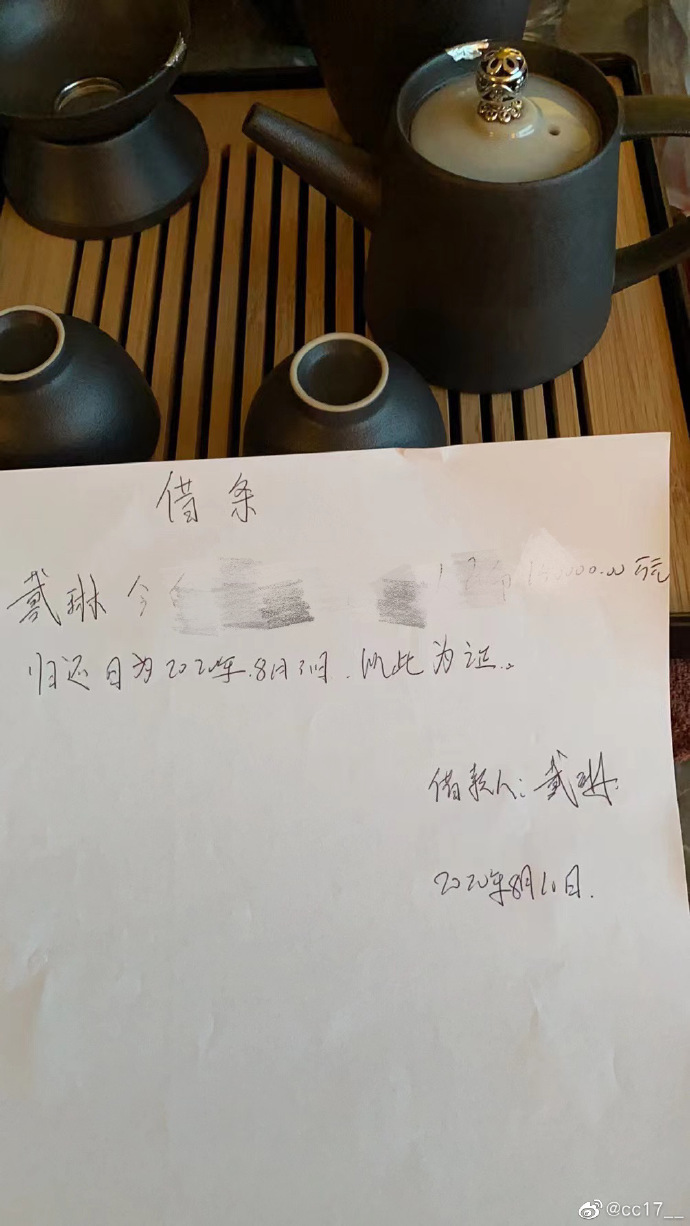 借条
戴琳今
0000.00万元
归还日为2020年.8月31日.以此为证。
借款人:戴琳
2020年8月10日.
@cc17__